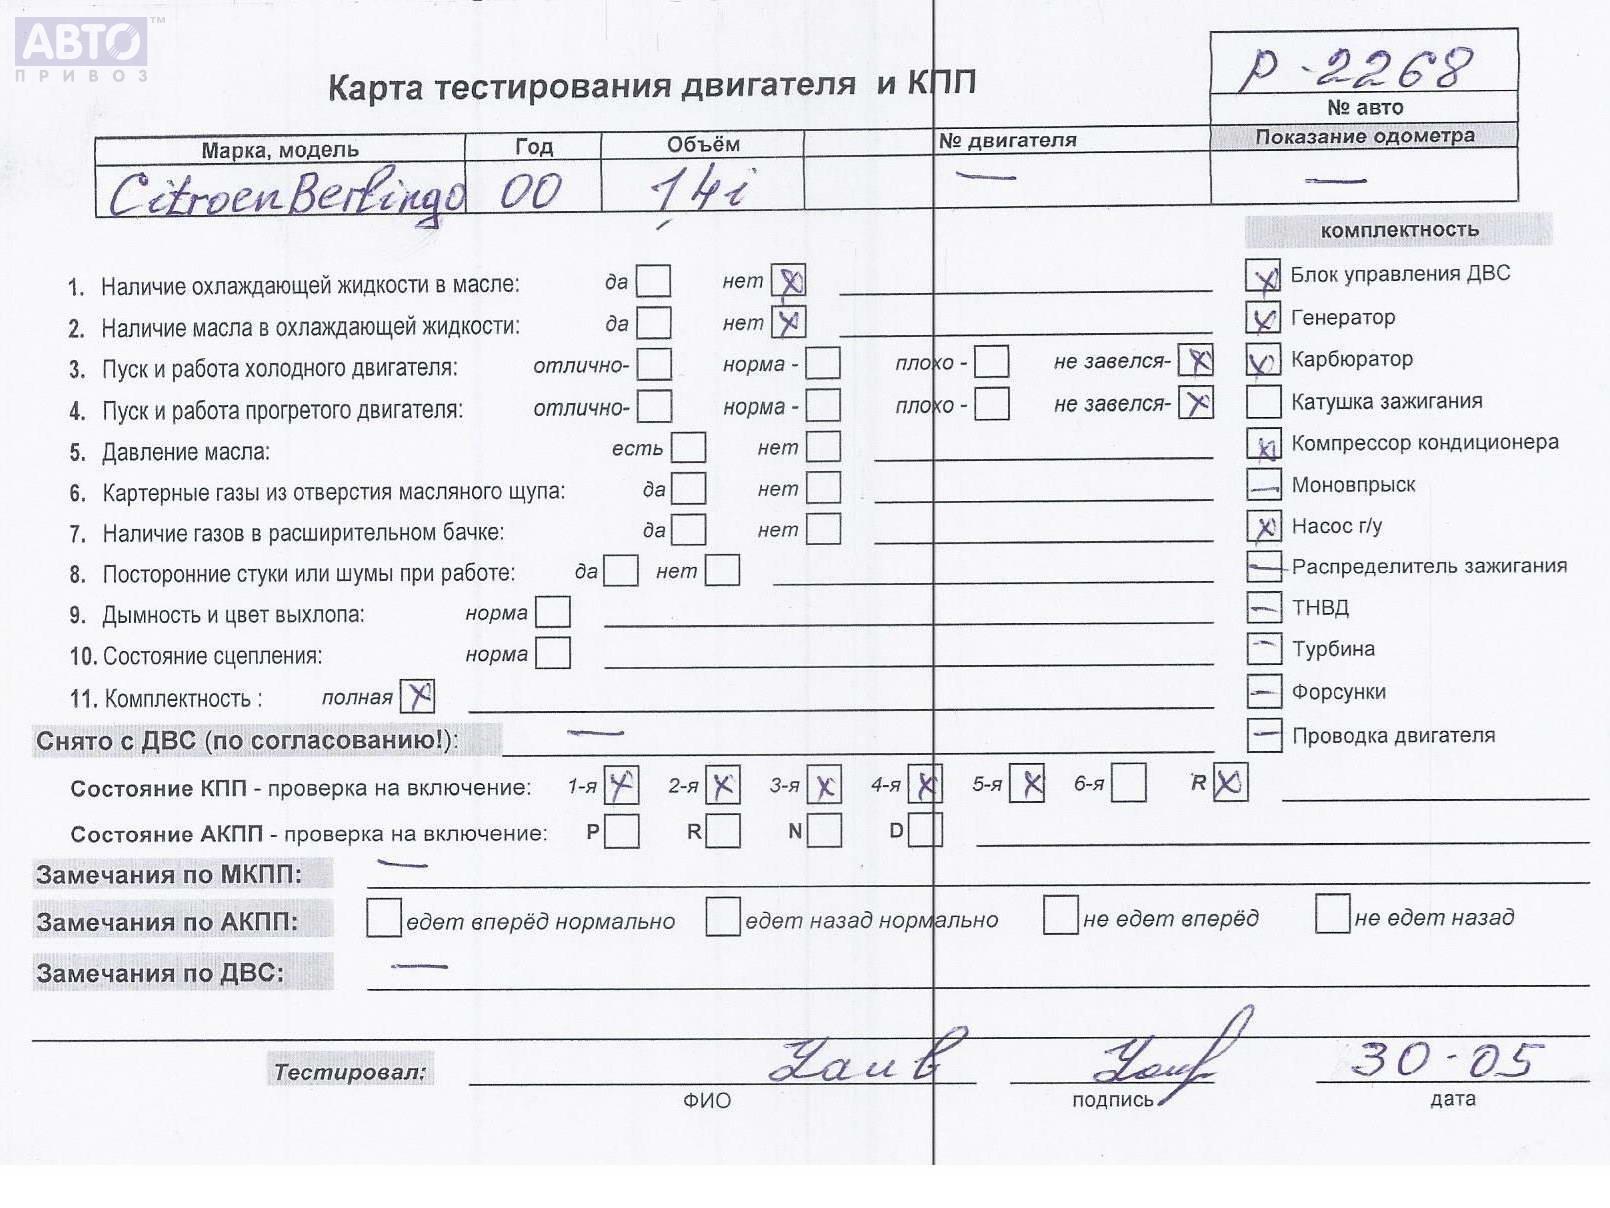 АВТО ™
ПРИВОЗ
Карта тестирования двигателя и КПП
Р-2268
№ авто
Марка, модель Год Объём № двигателя Показание одометра
Citroen Berlingo 00 1,4i — —
комплектность
1. Наличие охлаждающей жидкости в масле: да нет X
Блок управления ДВС
2. Наличие масла в охлаждающей жидкости: да нет X
Генератор
3. Пуск и работа холодного двигателя: отлично- норма - плохо - не завелся- X
Карбюратор
4. Пуск и работа прогретого двигателя: отлично- норма - плохо - не завелся- X
Катушка зажигания
5. Давление масла: есть нет
Компрессор кондиционера
6. Картерные газы из отверстия масляного щупа: да нет
Моновпрыск
7. Наличие газов в расширительном бачке: да нет
Насос г/у
8. Посторонние стуки или шумы при работе: да нет
Распределитель зажигания
9. Дымность и цвет выхлопа: норма
ТНВД
10. Состояние сцепления: норма
Турбина
11. Комплектность : полная X
Форсунки
Снято с ДВС (по согласованию!): —
Проводка двигателя
Состояние КПП - проверка на включение: 1-я X 2-я X 3-я X 4-я X 5-я X 6-я R X
Состояние АКПП - проверка на включение: P R N D
Замечания по МКПП: —
Замечания по АКПП: едет вперёд нормально едет назад нормально не едет вперёд не едет назад
Замечания по ДВС: —
Тестировал: 30-05
ФИО подпись дата